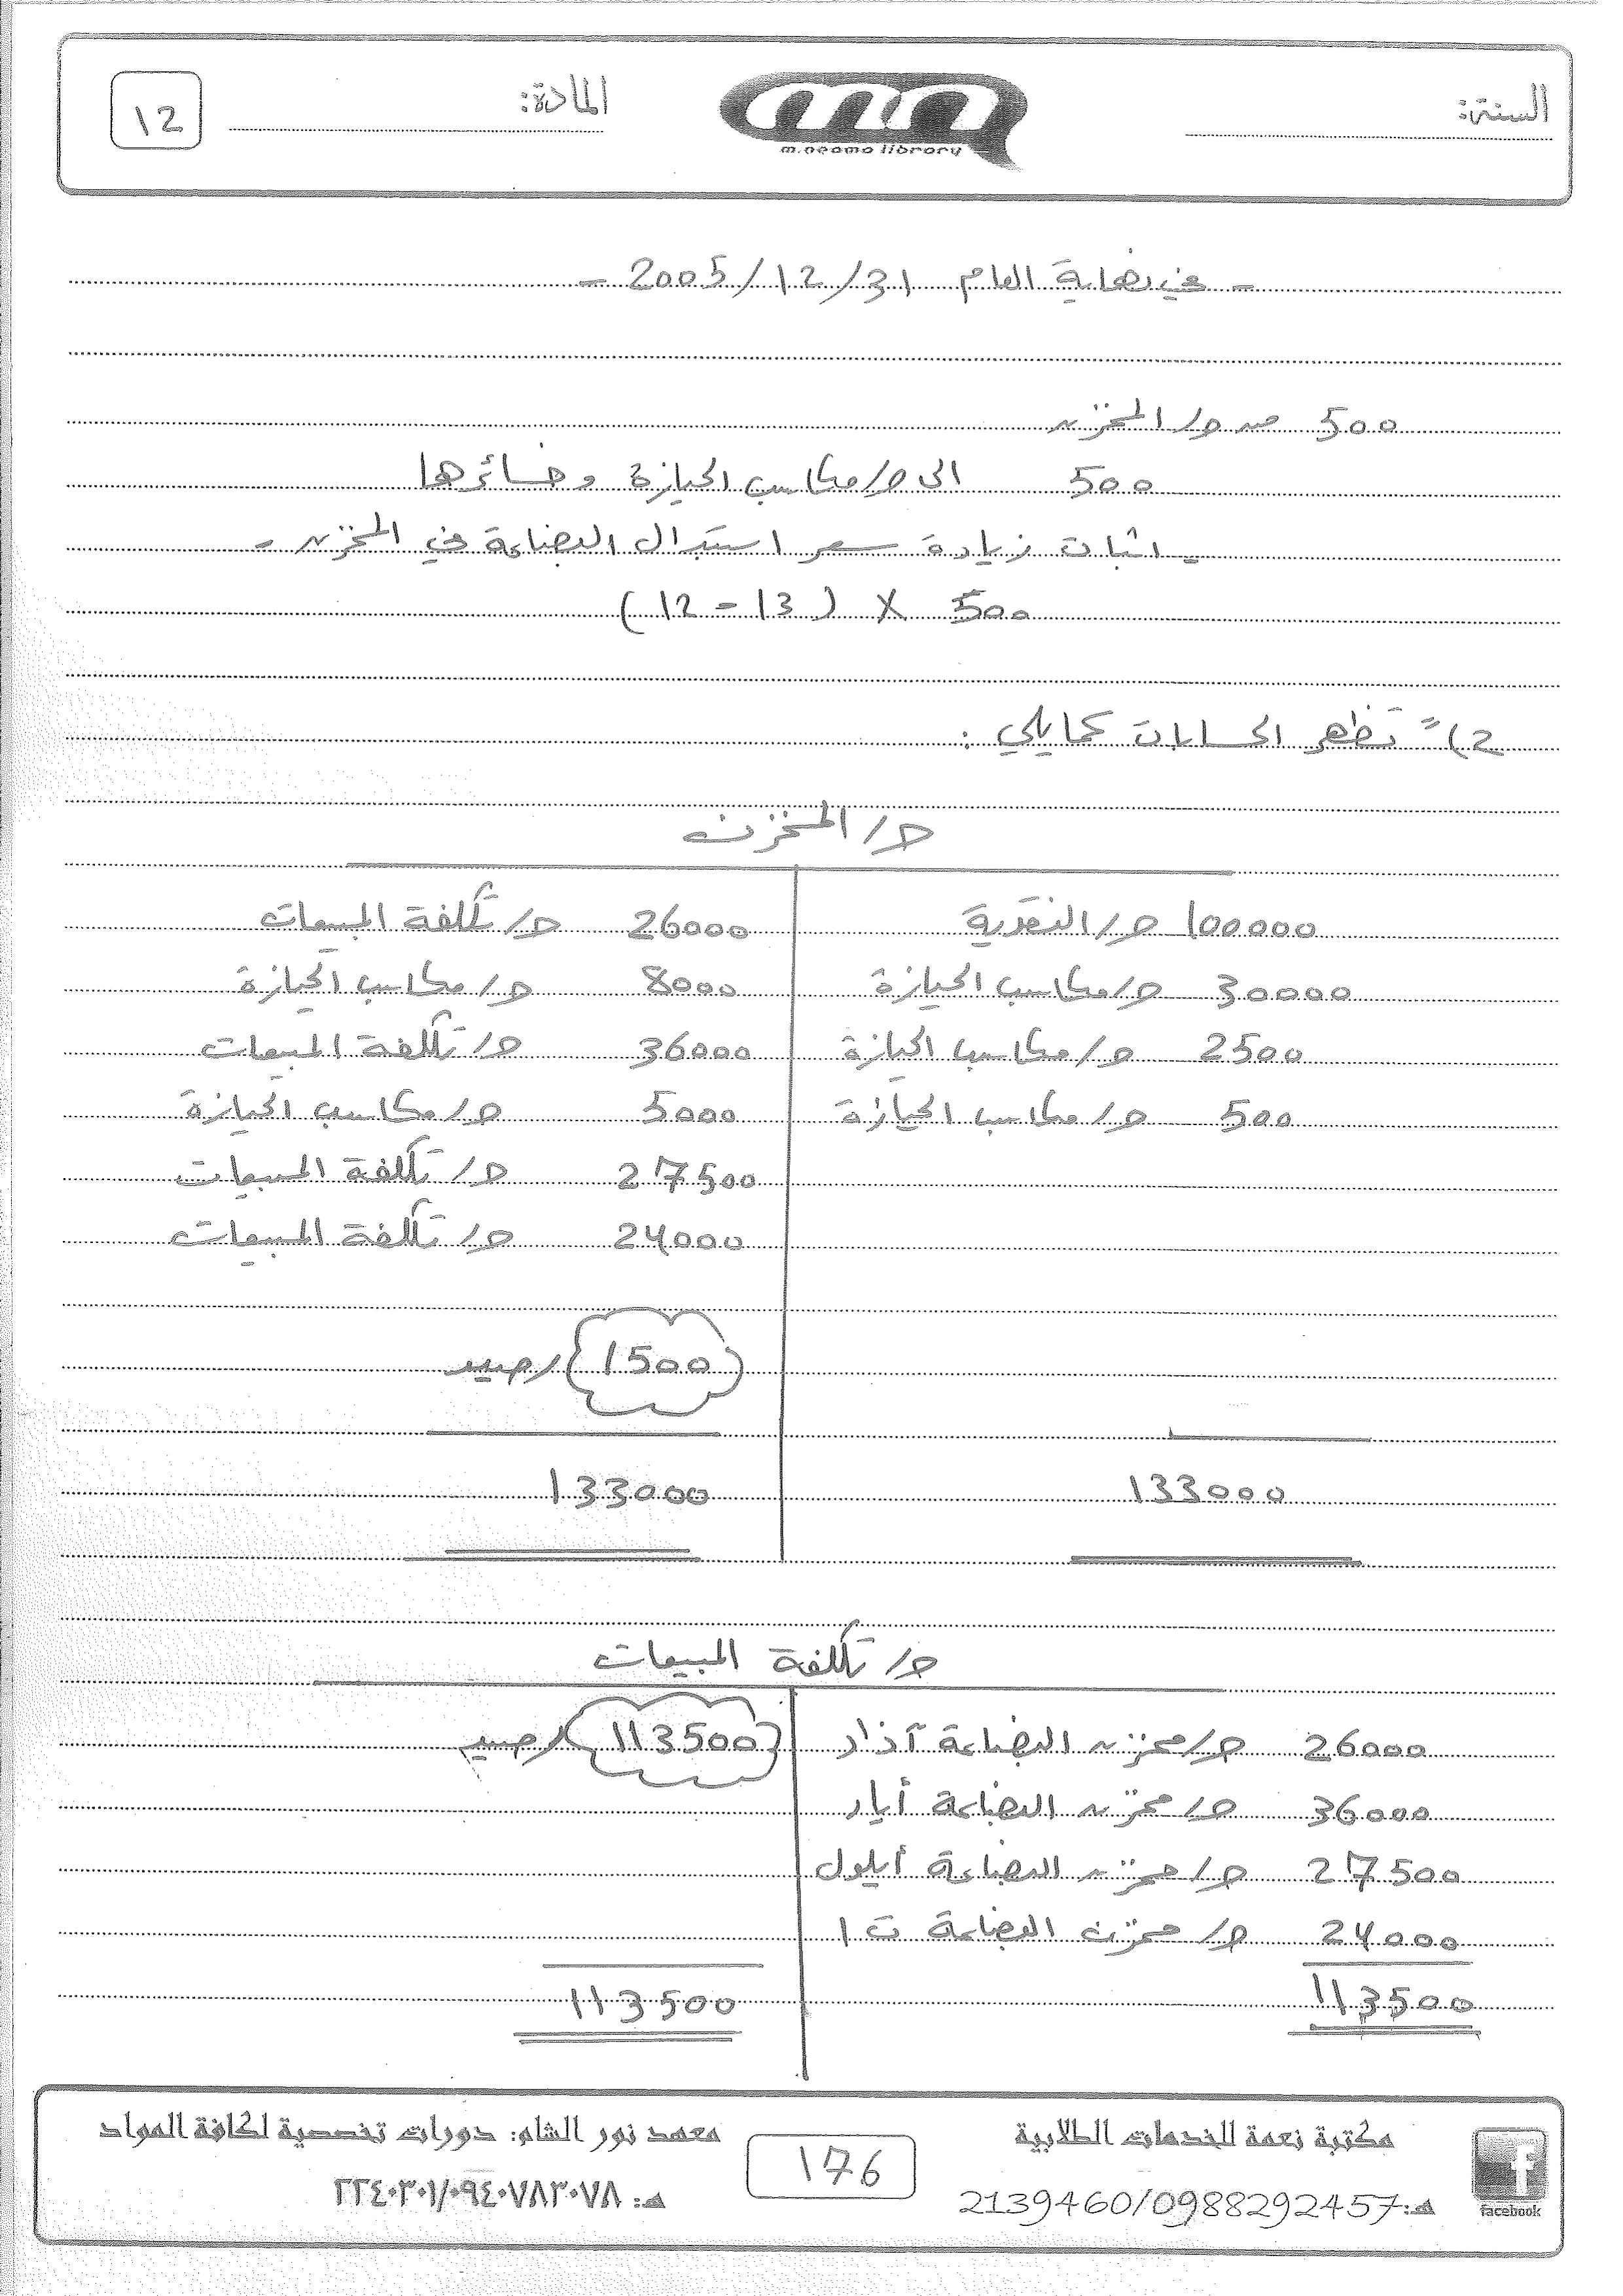 السنة:
m.neama library
المادة:
12
- في نهاية العام 2005/12/31 -
500 من ح/ المخزن
500 الى ح/ مكاسب الحيازة وخسائرها
- اثبات زيادة سعر استبدال البضاعة في المخزن -
500 X (13 - 12)
2) تظهر الحسابات كمايلي :
ح/ المخزن
100000 ح/ النقدية 26000 ح/ تكلفة المبيعات
30000 ح/ مكاسب الحيازة 8000 ح/ مكاسب الحيازة
2500 ح/ مكاسب الحيازة 36000 ح/ تكلفة المبيعات
500 ح/ مكاسب الحيازة 5000 ح/ مكاسب الحيازة
27500 ح/ تكلفة المبيعات
24000 ح/ تكلفة المبيعات
1500 رصيد
133000 133000
ح/ تكلفة المبيعات
26000 ح/ مخزن البضاعة آذار 113500 رصيد
36000 ح/ مخزن البضاعة أيار
27500 ح/ مخزن البضاعة أيلول
24000 ح/ مخزن البضاعة ت ا
113500 113500
مكتبة نعمة للخدمات الطلابية
هـ: 2139460/0988292457
facebook
176
معهد نور الشام: دورات تخصصية لكافة المواد
هـ: ٢٢٤٠٣٠١/٠٩٤٠٧٨٣٠٧٨